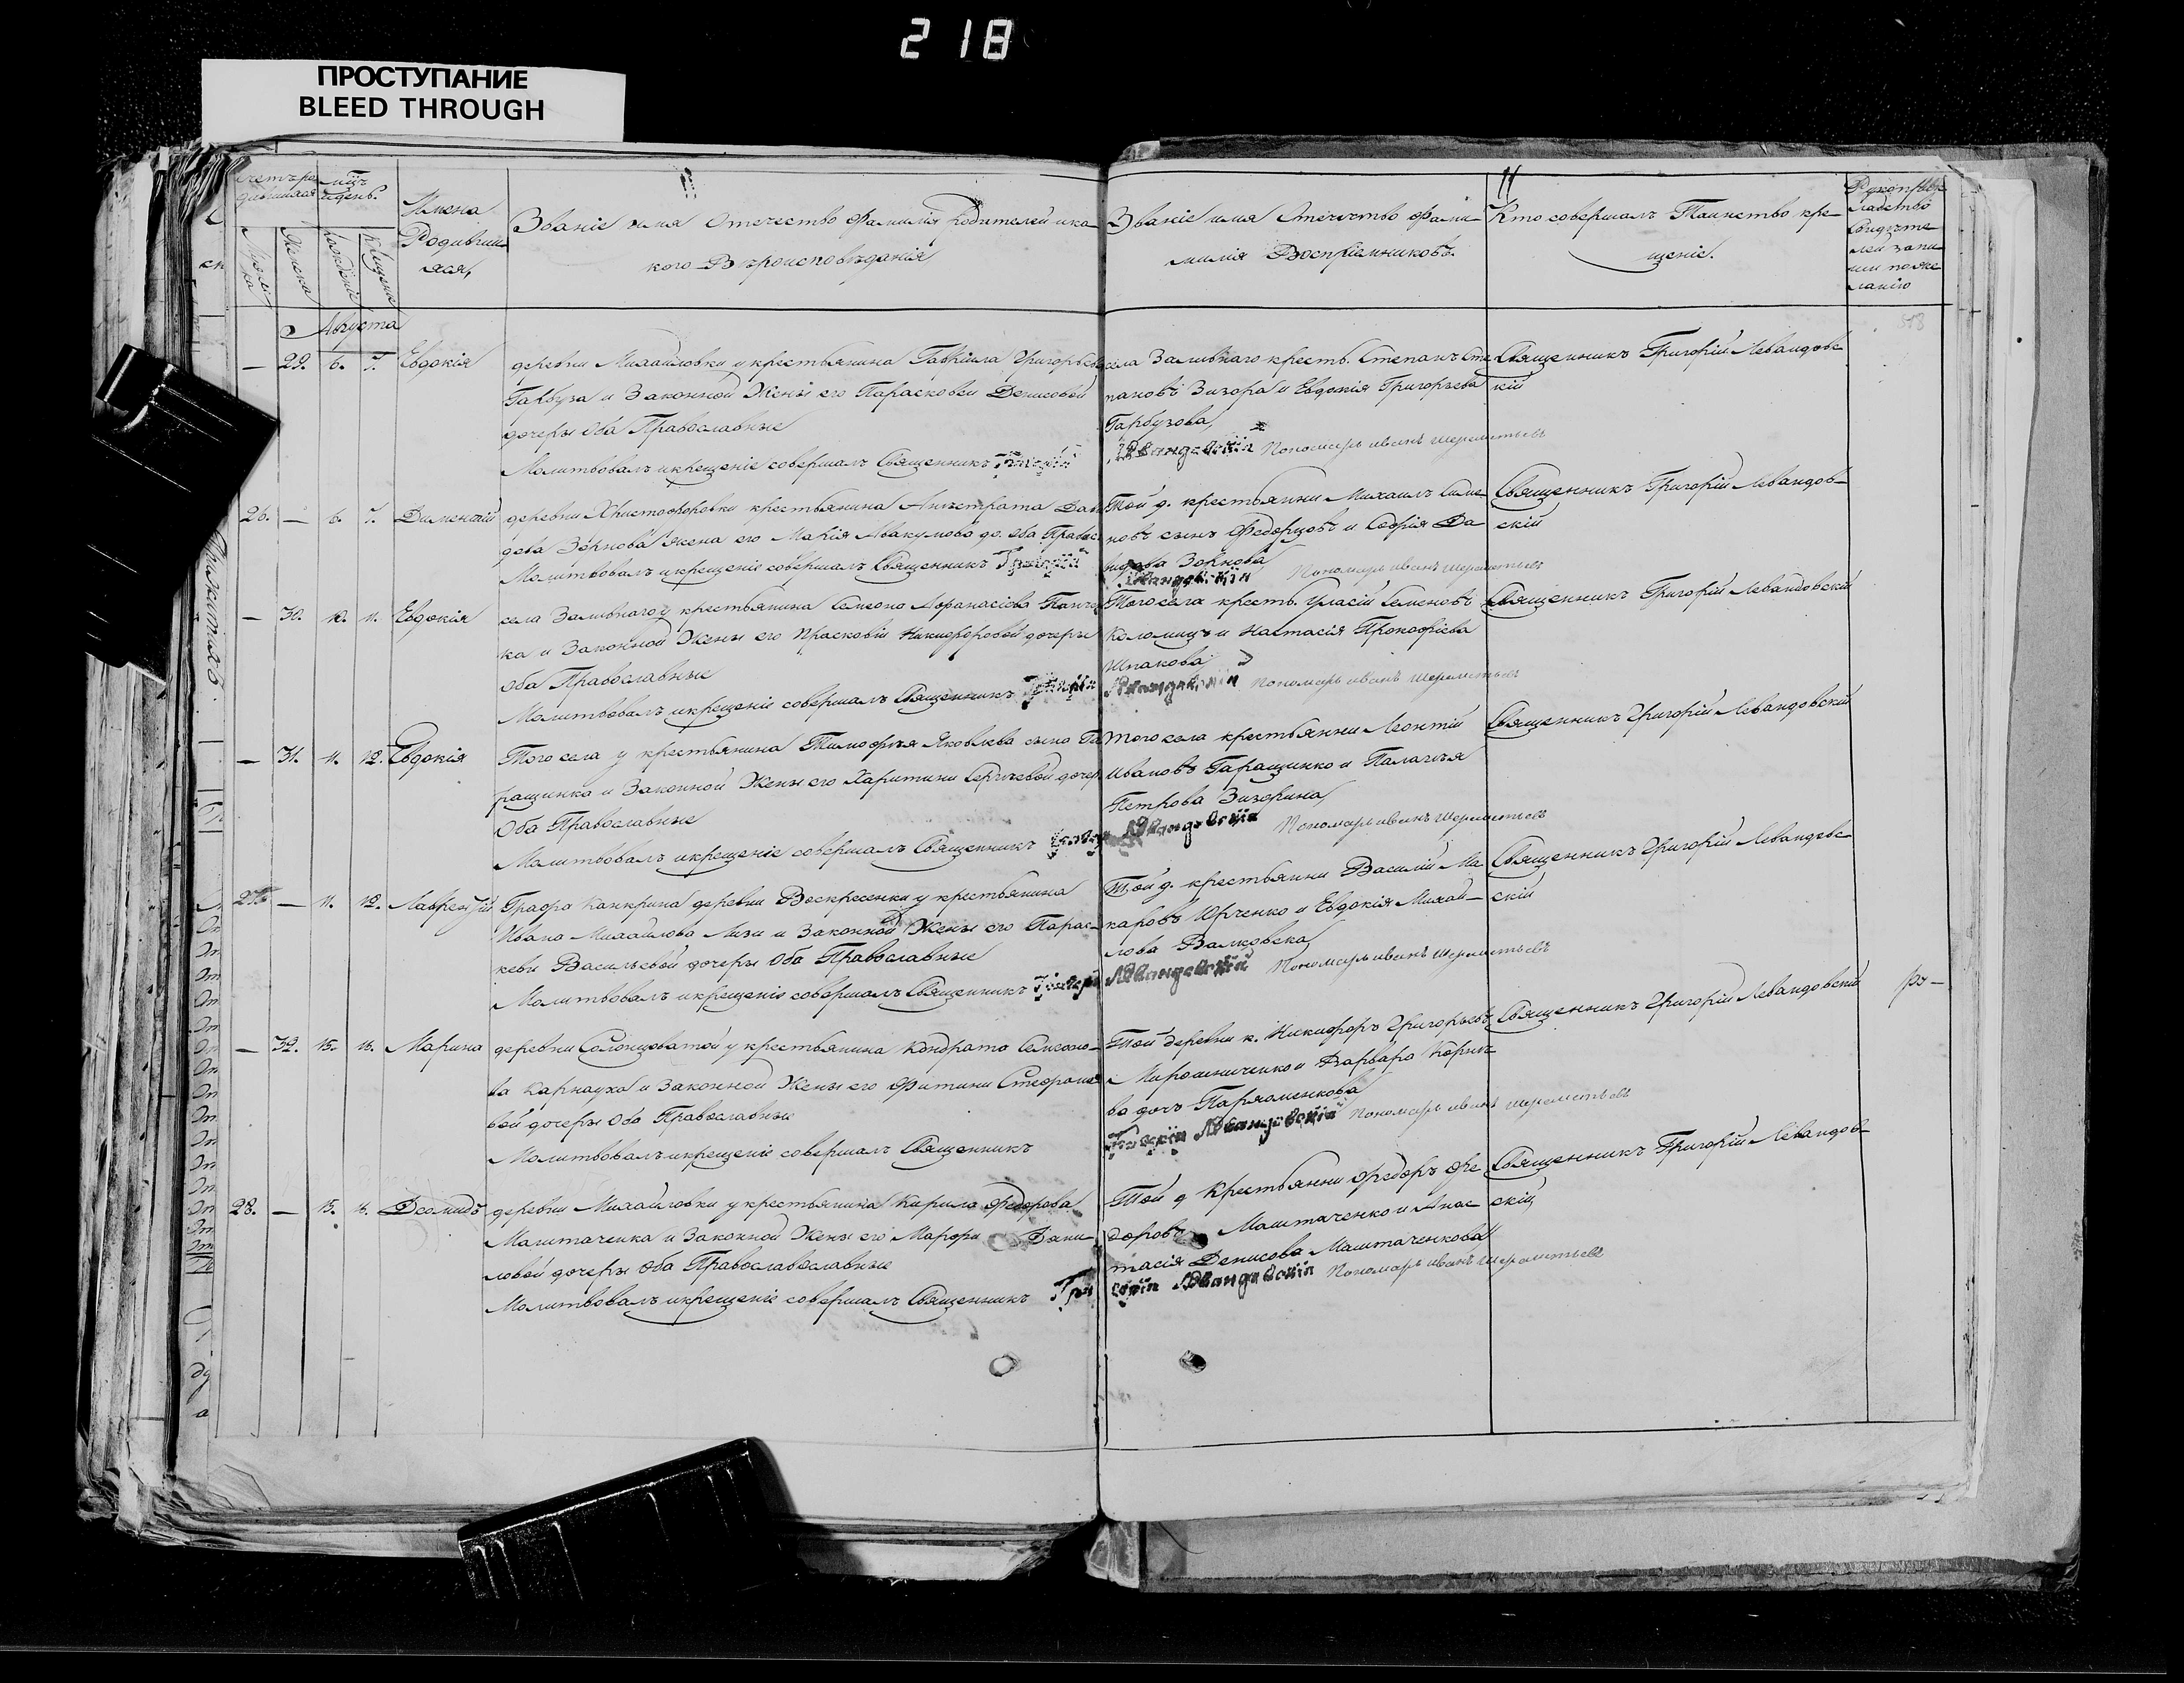 218
ПРОСТУПАНИЕ
BLEED THROUGH
Имена
Родивши
яся,
Званіе имя Отечество Фамилія родителей и ка
кого Вѣроисповѣданія
Званіе имя Отечество Фами
милія Воспріемниковъ.
Кто совершалъ Таинство кре
щеніе.
Августа
— 29. 6. 7. Евдокія
деревни Михайловки у крестьянина Гавріила Григорьева
Гарбуза и Законной Жены его Парасковеи Денисовой
дочеры Оба Православные
Молитвовалъ и крещеніе совершалъ Священникъ Григорій
села Заливнаго кресть. Степанъ Сте
пановъ Зизора и Евдокія Григорьева
Гарбузова,
Левандовскій Пономарь иванъ шереметьевъ
Священникъ Григорій Левандовс
кій
26. — 6. 7.
деревни Христофоровки крестьянина Анистрата Дави
дова Зорнова жена его Марія Авакумова до. Оба Правос
Молитвовалъ и крещеніе совершалъ Священникъ Григорій
Той д. крестьянин Михаилъ Симо
новъ сынъ Федорцовъ и Софія Да
Зорнова
Левандовскій Пономарь иванъ шереметьевъ
Священникъ Григорій Левандов
скій
— 30. 10. 11. Евдокія
села Заливнаго у крестьянина Семеона Афанасіева Панче
ка и Законной Жены его Прасковіи Никифоровой дочеры
Оба Православные
Молитвовалъ и крещеніе совершалъ Священникъ Григорій
Того села кресть. Уласій Семеновъ
Коломицъ и Настасія Прокофіева
Шпакова
Левандовскій пономарь иванъ шереметьевъ
Священникъ Григорій Левандовскій
— 31. 11. 12. Евдокія
Того села у крестьянина Тимофѣя Яковлева сына Га
ращинка и Законной Жены его Харитини Сергѣевой дочер
Оба Православные
Молитвовалъ и крещеніе совершалъ Священникъ Григорій
того села крестьянин Леонтій
Ивановъ Гаращинко и Палагѣя
Петрова Зизорина
Левандовскій Пономарь иванъ шереметьевъ
Священникъ Григорій Левандовскій
27. — 11. 12. Лаврентій
Графа Канкрина деревни Воскресенки у крестьянина
Ивана Михайлова Лизи и Законной Жены его Парас
кеви Васильевой дочеры Оба Православные
Молитвовалъ и крещеніе совершалъ Священникъ Григорій
Той д. крестьянин Василій Ма
каровъ Юрченко и Евдокія Михай
лова Валковска
Левандовскій Пономарь иванъ шереметьевъ
Священникъ Григорій Левандовс
скій
— 32. 15. 16. Марина
деревни Солонцоватой у крестьянина Кондрата Семеоно
ва Карнауха и Законной Жены его Фитини Стефано
вой дочеры Оба Православные
Молитвовалъ и крещеніе совершалъ Священникъ
Той деревни к. Никифоръ Григорьевъ
Мирошниченко и Варвара Корнѣ
ва дочь Пархоменкова
Григорій Левандовскій Пономарь иванъ шереметьевъ
Священникъ Григорій Левандовскій
28. — 15. 16. Деомидъ
деревни Михайловки у крестьянина Кирила Федорова
Маштаченка и Законной Жены его Марфи Дани
ловой дочеры Оба Православославные
Молитвовалъ и крещеніе совершалъ Священникъ Гри
Той д Крестьянин Федоръ Фе
доровъ Маштаченко и Анас
тасія Денисова Маштаченкова
горій Левандовскій Пономарь иванъ шереметьевъ
Священникъ Григорій Левандов
скій,